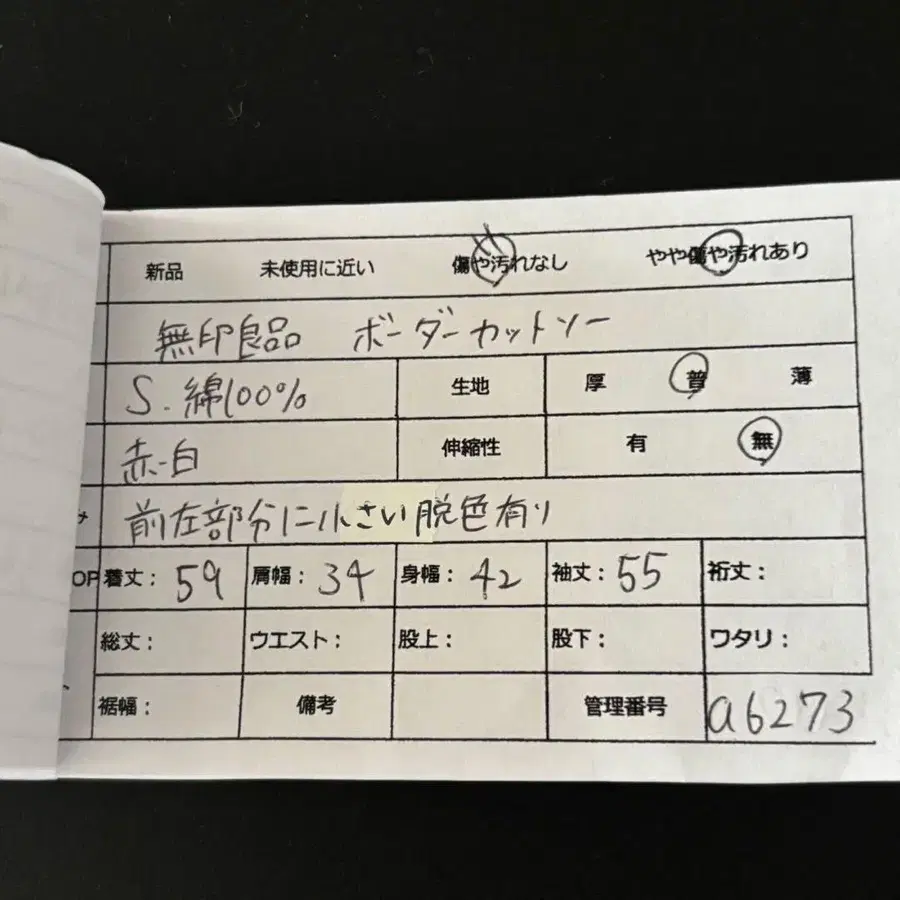 新品 未使用に近い 傷や汚れなし やや傷や汚れあり
無印良品 ボーダーカットソー
S.綿100% 生地 厚 普 薄
赤-白 伸縮性 有 無
前左部分に小さい脱色有り
OP 着丈: 59 肩幅: 34 身幅: 42 袖丈: 55 裄丈:
総丈: ウエスト: 股上: 股下: ワタリ:
裾幅: 備考 管理番号 a6273